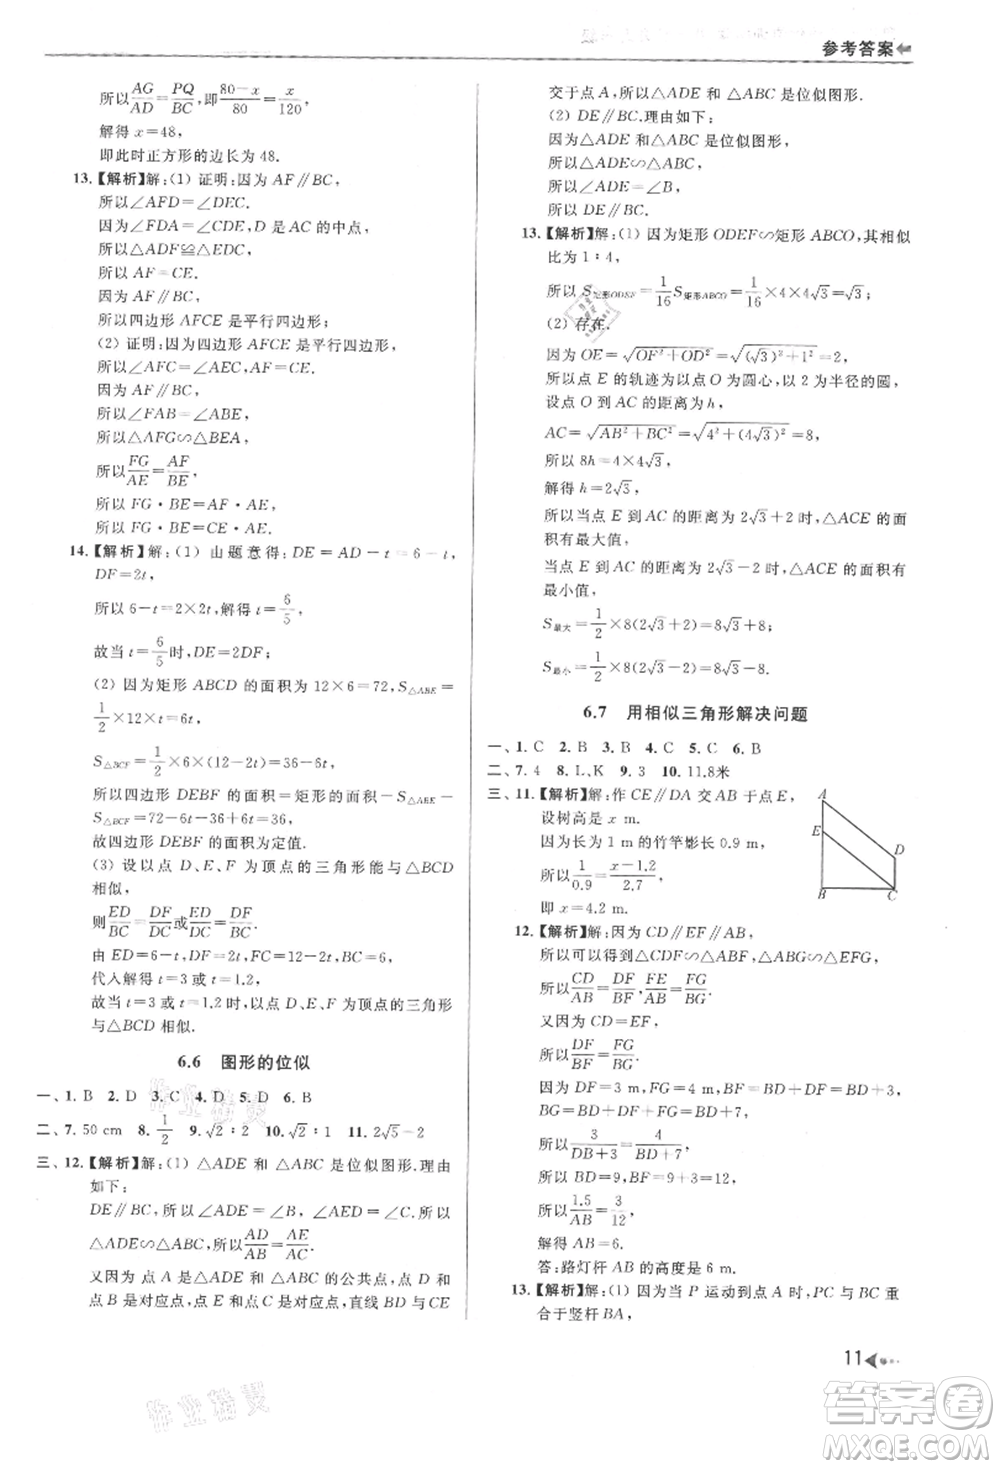 参考答案
所以AG/AD=PQ/BC,即(80-x)/80=x/120,
解得 x=48,
即此时正方形的边长为 48.
13.【解析】解:(1) 证明:因为 AF∥BC,
所以∠AFD=∠DEC.
因为∠FDA=∠CDE,D 是 AC 的中点,
所以△ADF≌△CDE.
所以 AF=CE.
因为 AF∥BC,
所以四边形 AFCE 是平行四边形;
(2) 证明:因为四边形 AFCE 是平行四边形,
所以∠AFC=∠AEC,AF=CE.
因为 AF∥BC,
所以∠FAB=∠ABE,
所以△AFG∽△BEA,
所以FG/AE=AF/BE,
所以 FG·BE=AF·AE,
所以 FG·BE=CE·AE.
14.【解析】解:(1) 由题意得:DE=AD-t=6-t,
DF=2t,
所以 6-t=2×2t,解得 t=6/5,
故当 t=6/5时,DE=2DF;
(2) 因为矩形 ABCD 的面积为 12×6=72,S△ABE=
1/2×12×t=6t,
S△BCF=1/2×6×(12-2t)=36-6t,
所以四边形 DEBF 的面积=矩形的面积-S△ABE-
S△BCF=72-6t-36+6t=36,
故四边形 DEBF 的面积为定值.
(3) 设以点 D、E、F 为顶点的三角形能与△BCD
相似,
则ED/BC=DF/DC或ED/DC=DF/BC,
由 ED=6-t,DF=2t,FC=12-2t,BC=6.
代入解得 t=3 或 t=1.2,
故当 t=3 或 t=1.2 时,以点 D、E、F 为顶点的三角形
与△BCD 相似.
6.6 图形的位似
一、1. B 2. D 3. C 4. D 5. D 6. B
二、7. 50 cm 8. 1/2 9. √2∶2 10. √2∶1 11. 2√5-2
三、12.【解析】解:(1) △ADE 和△ABC 是位似图形.理由
如下:
DE∥BC,所以∠ADE=∠B,∠AED=∠C.所以
△ADE∽△ABC,所以AD/AB=AE/AC.
又因为 点 A 是△ADE 和△ABC 的公共点,点 D 和
点 B 是对应点,点 E 和点 C 是对应点,直线 BD 与 CE
交于点 A,所以△ADE 和△ABC 是位似图形.
(2) DE∥BC.理由如下:
因为△ADE 和△ABC 是位似图形,
所以△ADE∽△ABC,
所以∠ADE=∠B,
所以 DE∥BC.
13.【解析】解:(1) 因为矩形 ODEF∽矩形 ABCO,其相似
比为 1∶4,
所以 S矩形ODEF=1/16S矩形ABCO=1/16×4×4√3=√3;
(2) 存在.
因为 OE=√(OF²+OD²)=√((√3)²+1²)=2,
所以点 E 的轨迹为以点 O 为圆心,以 2 为半径的圆,
设点 O 到 AC 的距离为 h,
AC=√(AB²+BC²)=√(4²+(4√3)²)=8,
所以 8h=4×4√3,
解得 h=2√3,
所以当点 E 到 AC 的距离为 2√3+2 时,△ACE 的面积
有最大值,
当点 E 到 AC 的距离为 2√3-2 时,△ACE 的面积有
最小值,
S最大=1/2×8(2√3+2)=8√3+8;
S最小=1/2×8(2√3-2)=8√3-8.
6.7 用相似三角形解决问题
一、1. C 2. B 3. B 4. C 5. C 6. B
二、7. 4 8. L,K 9. 3 10. 11.8米
三、11.【解析】解:作 CE∥DA 交 AB 于点 E,
设树高是 x m.
因为长为 1 m 的竹竿影长 0.9 m,
所以1/0.9=(x-1.2)/2.7,
即 x=4.2 m.
A
E
D
B
C
12.【解析】解:因为 CD∥EF∥AB,
所以可以得到△CDF∽△ABF,△ABG∽△EFG,
所以CD/AB=DF/BF,FE/AB=FG/BG.
又因为 CD=EF,
所以DF/BF=FG/BG.
因为 DF=3,FG=4,BF=BD+DF=BD+3,
BG=BD+DF+FG=BD+7,
所以3/(DB+3)=4/(BD+7),
所以 BD=9,BF=9+3=12,
所以1.5/AB=3/12,
解得 AB=6.
答:路灯杆 AB 的高度是 6 m.
13.【解析】解:(1) 因为当 P 运动到点 A 时,PC 与 BC 重
合于竖杆 BA,
11
作业精灵
作业精灵
答案圈
MXQE.COM